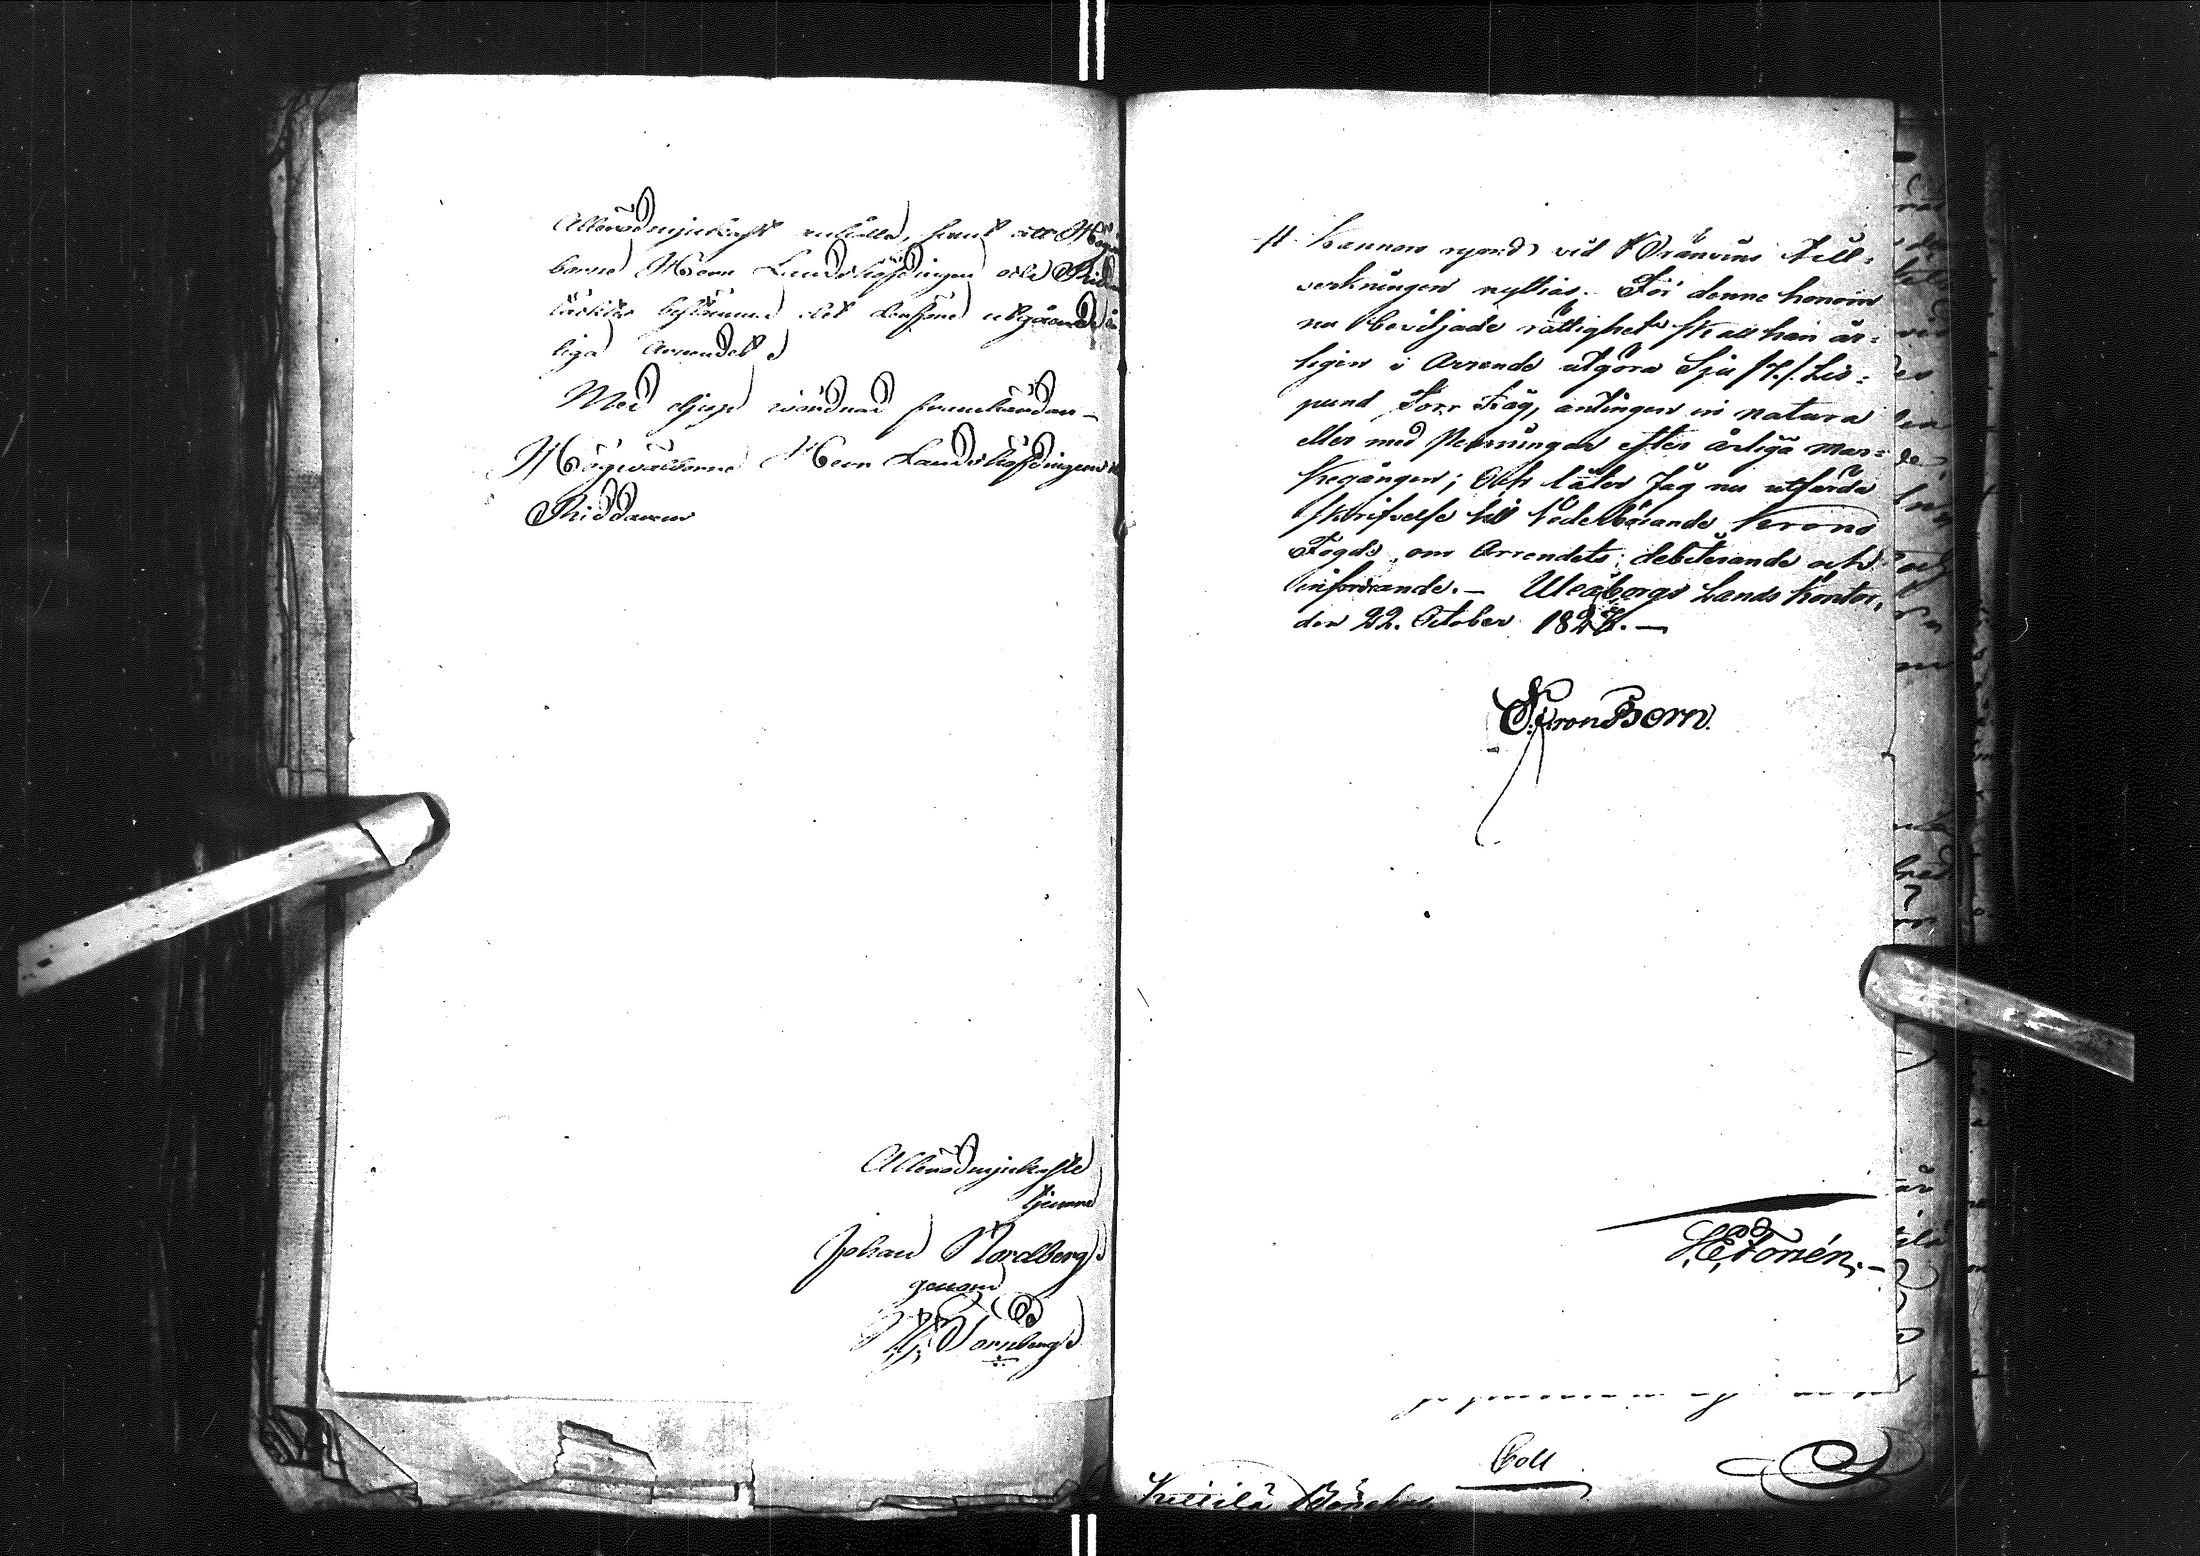 Allerödmjukast anhålla, samt att Högwäl
borne Herr Landshöfdingen och Rid
täcktes bestämma det derföre utgående år
liga Arrendet
Med djup wördnad framhärdar
Högwälborne Herr Landshöfdingens
Riddarens
Allerödmjukaste
tjenare
Johan Nordberg
genom
Tornberg
kannors rymd vid Bränvins Till-
verkningen nyttias. För denne honom
nu beviljade rättighet skall han är-
ligen i Arrende utgöra Sju /7./. Lis-
pund Torr Räg, äntingen in natura
eller med Penningar efter årliga Mar-
kegången; Och låter Jag nu utfärda
skrifvelse till Vederbörande Krono
Fogde om Arrendets debiterande och
infordrande. - Uleåborgs Lands Contor,
den 22. October 182
S. F. von Born.
H. E. Fortén.
Coll
Kittilä